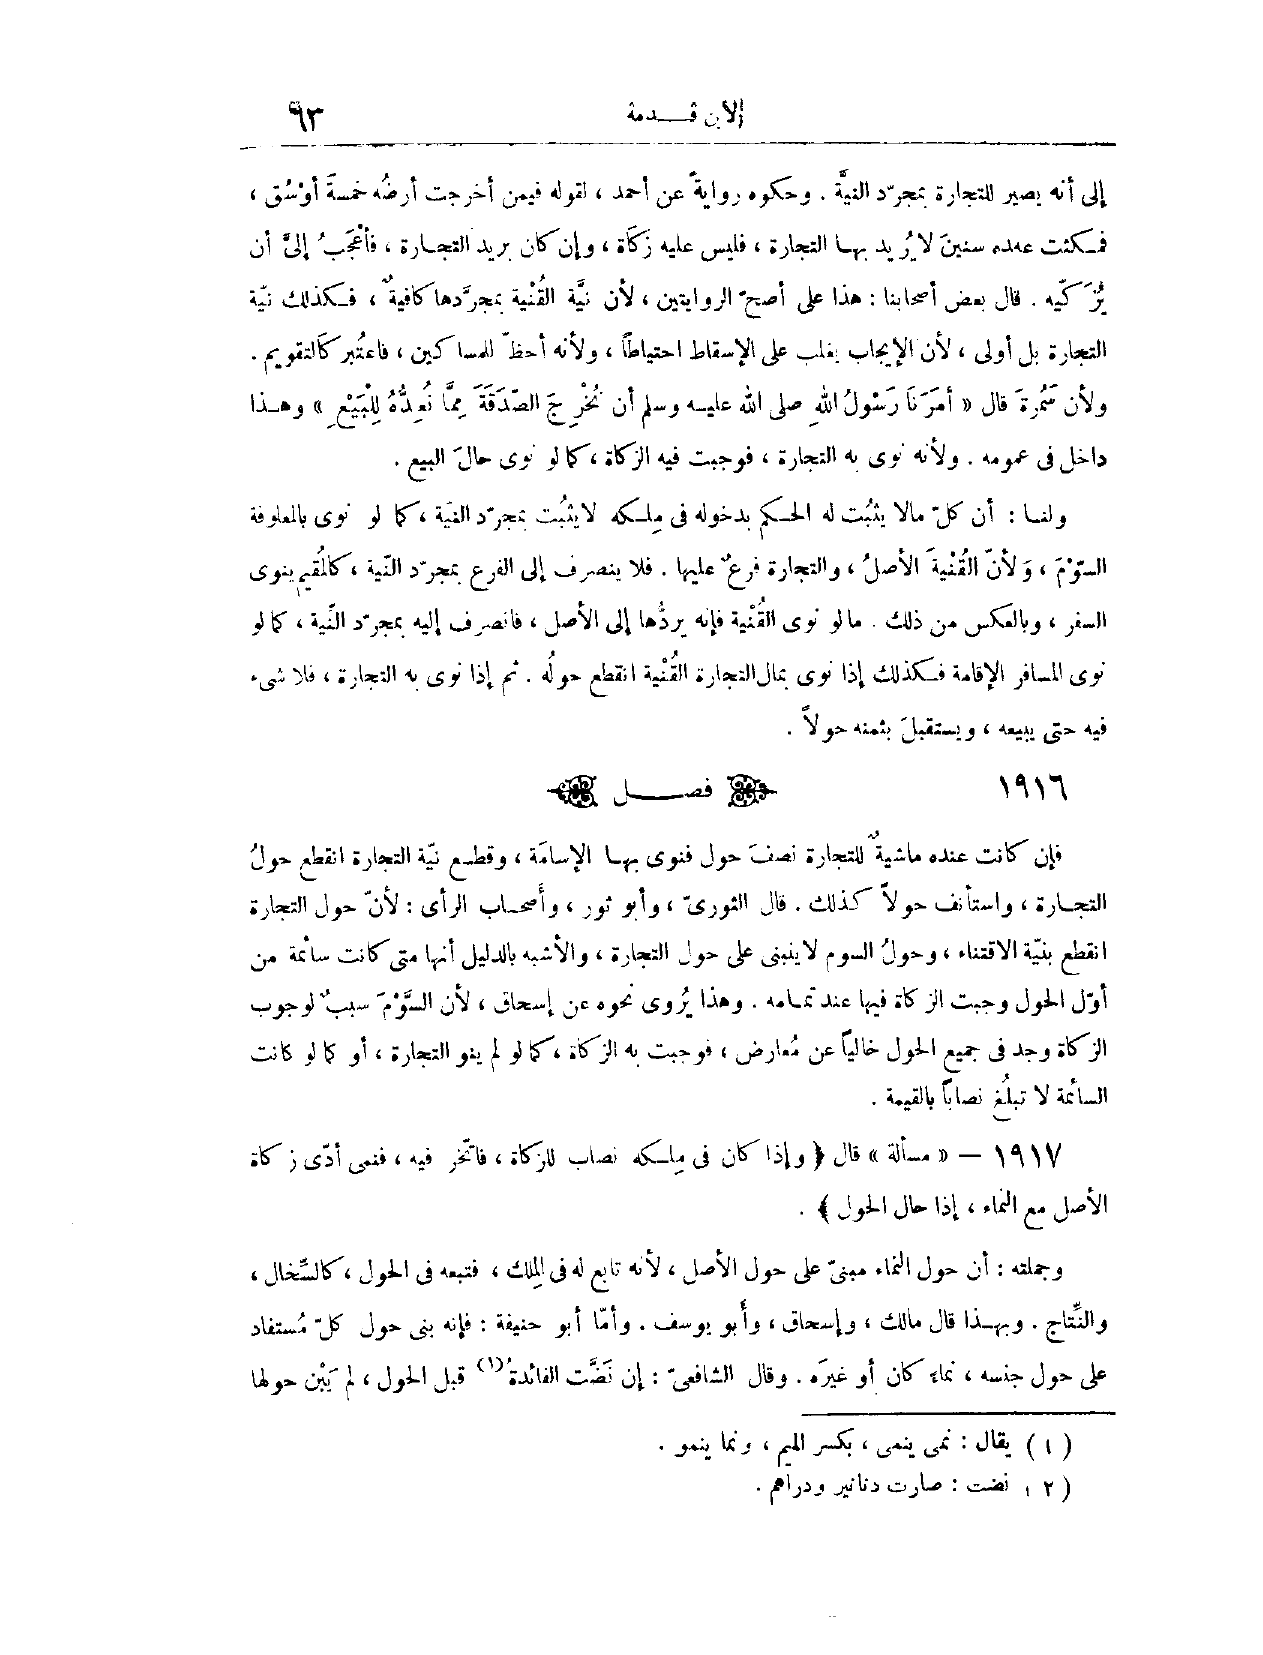 لابن قـــدمة ٦٣
إلى أنه يصير للتجارة بمجرّد النيَّة . وحكوه روايةً عن أحمد ، لقوله فيمن أخرجت أرضُه خمسةَ أوْسُق ،
فمكثت عنده سنينَ لا يُريد بهـا التجارة ، فليس عليه زكاة ، وإن كان يريد التجـارة ، فأعْجَبُ إلىَّ أن
يُزَكّيه . قال بعض أصحابنا : هذا على أصحّ الروايتين ، لأن نيَّة القُنْية بمجرَّدها كافيةٌ ، فكذلك نيّة
التجارة بل أولى ، لأن الإيجاب يغلب على الإسقاط احتياطاً ، ولأنه أحظّ للمساكين ، فاعتُبر كالتقويم .
ولأن سَمُرةَ قال « أمَرَنَا رَسُولُ اللهِ صلى الله عليـه وسلم أن نُخْرِجَ الصّدَقَةَ مِمَّا نُعِدُّهُ لِلْبَيْعِ » وهـذا
داخل فى عمومه . ولأنه نوى به التجارة ، فوجبت فيه الزكاة ، كما لو نوى حالَ البيع .
ولنـا : أن كلّ مالا يثبُت له الحكم بدخوله فى مِلكه لا يثبُت بمجرّد النيَّة ، كما لو نوى بالمعلوفة
السوْمَ ، وَلأنّ القُنْيةَ الأصلُ ، والتجارة فرعٌ عليها . فلا ينصرف إلى الفرع بمجرّد النّية ، كالمُقيم ينوى
السفر ، وبالعكس من ذلك . مالو نوى القُنْية فإنه يردُّها إلى الأصل ، فانصرف إليه بمجرّد النّية ، كما لو
نوى المسافر الإقامة فكذلك إذا نوى بمال التجارة القُنْية انقطع حولُه . ثم إذا نوى به التجارة ، فلا شىء
فيه حتى يبيعه ، ويستقبلَ بثمنه حولاً .
١٩١٦ فصـــل
فإن كانت عنده ماشيةٌ للتجارة نصفَ حول فنوى بهـا الإسامَة ، وقطـع نيّة التجارة انقطع حولُ
التجـارة ، واستأنف حولاً كذلك . قال الثورىّ ، وأبو ثور ، وأصحاب الرأى : لأنّ حول التجارة
انقطع بنيّة الاقتناء ، وحولُ السوم لا ينبنى على حول التجارة ، والأشبه بالدليل أنها متى كانت سائمة من
أوّل الحول وجبت الزكاة فيها عند تمـامه . وهذا يُروى نحوه عن إسحاق ، لأن السَّوْمَ سببٌ لوجوب
الزكاة وجد فى جميع الحول خالياً عن مُعارض ، فوجبت به الزكاة ، كما لو لم ينو التجارة ، أو كما لو كانت
السائمة لا تبلُغ نصاباً بالقيمة .
١٩١٧ — « مسألة » قال ﴿ وإذا كان فى مِلكه نصاب للزكاة ، فاتّجر فيه ، فنمى أدّى زكاة
الأصل مع النماء ، إذا حال الحول ﴾ .
وجملته : أن حول النماء مبنىّ على حول الأصل ، لأنه تابع له فى الِملك ، فتبعه فى الحول ، كالسِّخال ،
والنِّتاج . وبهـذا قال مالك ، وإسحاق ، وأبو يوسف . وأمّا أبو حنيفة : فإنه بنى حول كلّ مُستفاد
على حول جنسه ، نماءً كان أو غيرَه . وقال الشافعىّ : إن نَضَّت الفائدةُ (١) قبل الحول ، لم يَبْن حولها
( ١ ) يقال : نمى ينمى ، بكسر الميم ، ونما ينمو .
( ٢ ) نضت : صارت دنانير ودراهم .